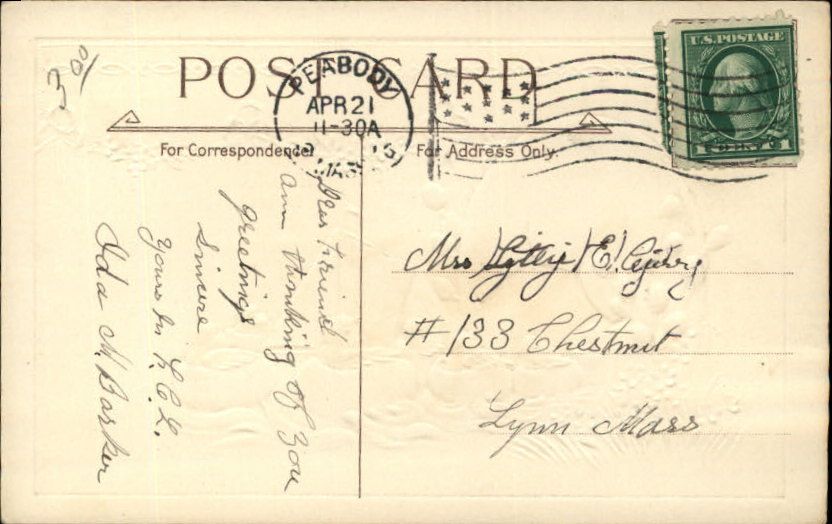 3 00/
POST CARD
PEABODY
APR 21
11-30A
MASS
U.S. POSTAGE
1 1
For Correspondence
For Address Only.
Dear Friend
am thinking of you
greetings
Sincere
Yours In F.C.L.
Ida M. Barker
Mrs E.
#133 Chestnut
Lynn Mass